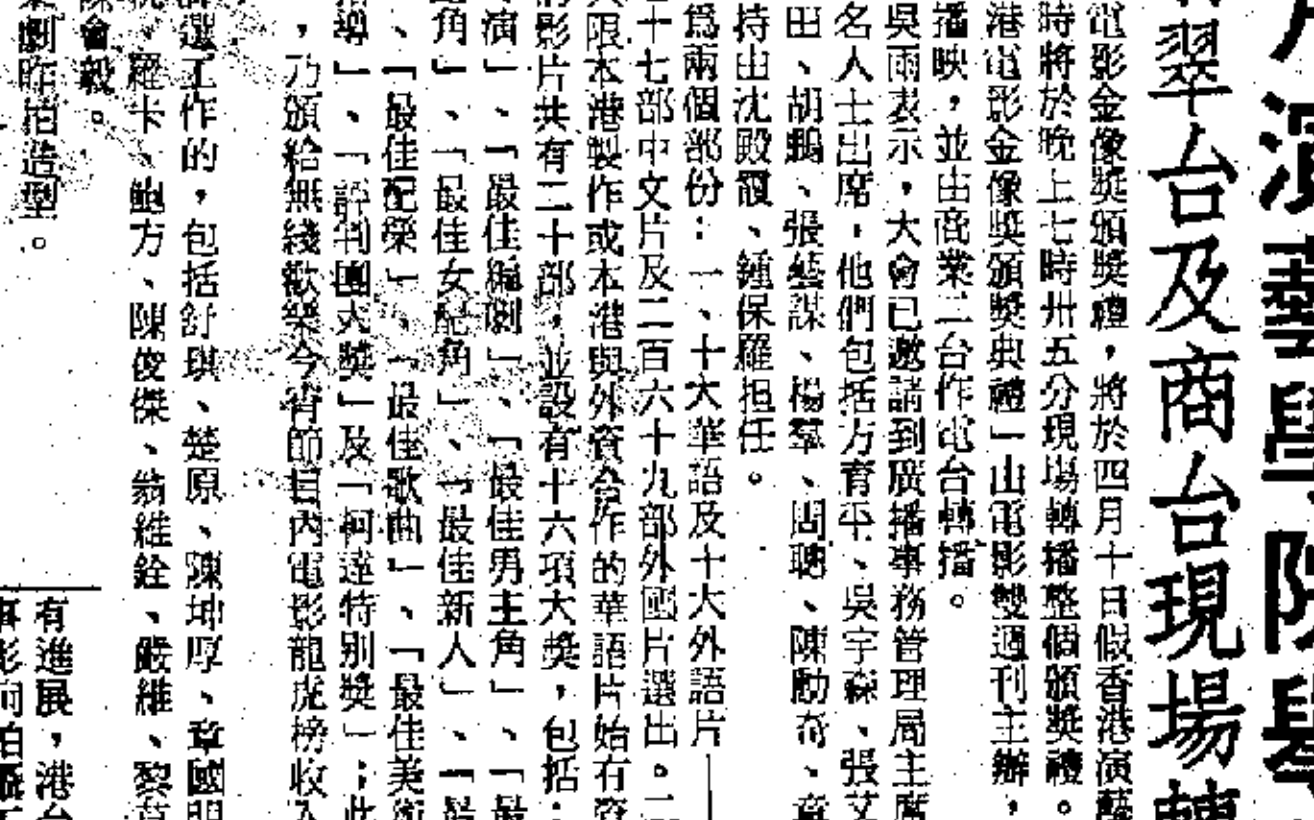 演藝學院舉
翠台及商台現場轉
電影金像獎頒獎禮，將於四月十日假香港演藝
時將於晚上七時卅五分現場轉播整個頒獎禮。
港電影金像獎頒獎典禮」由電影雙週刊主辦，
播映，並由商業二台作電台轉播。
吳雨表示，大會已邀請到廣播事務管理局主席
名人士出席，他們包括方育平、吳宇森、張艾
田、胡鵬、張藝謀、楊羣、周聰、陳勳奇、
持由沈殿霞、鍾保羅担任。
爲兩個部份：一、十大華語及十大外語片—
十七部中文片及二百六十九部外國片選出。二
限本港製作或本港與外資合作的華語片始有資
影片共有二十部，並設有十六項大獎，包括：
演」、「最佳編劇」、「最佳男主角」、「最
角」、「最佳女配角」、「最佳新人」、「最
、「最佳配樂」、「最佳歌曲」、「最佳美術
導」、「評判團大獎」及「柯達特別獎」；此
，乃頒給無綫歡樂今宵節目內電影龍虎榜收入
選工作的，包括舒琪、楚原、陳坤厚、章國明
、羅卡、鮑方、陳俊傑、翁維銓、嚴維、黎
會毅。
劇昨拍造型。
有進展，港台